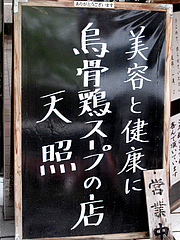 ありがとうございます
美容と健康に
烏骨鶏スープの店
天照
営業中